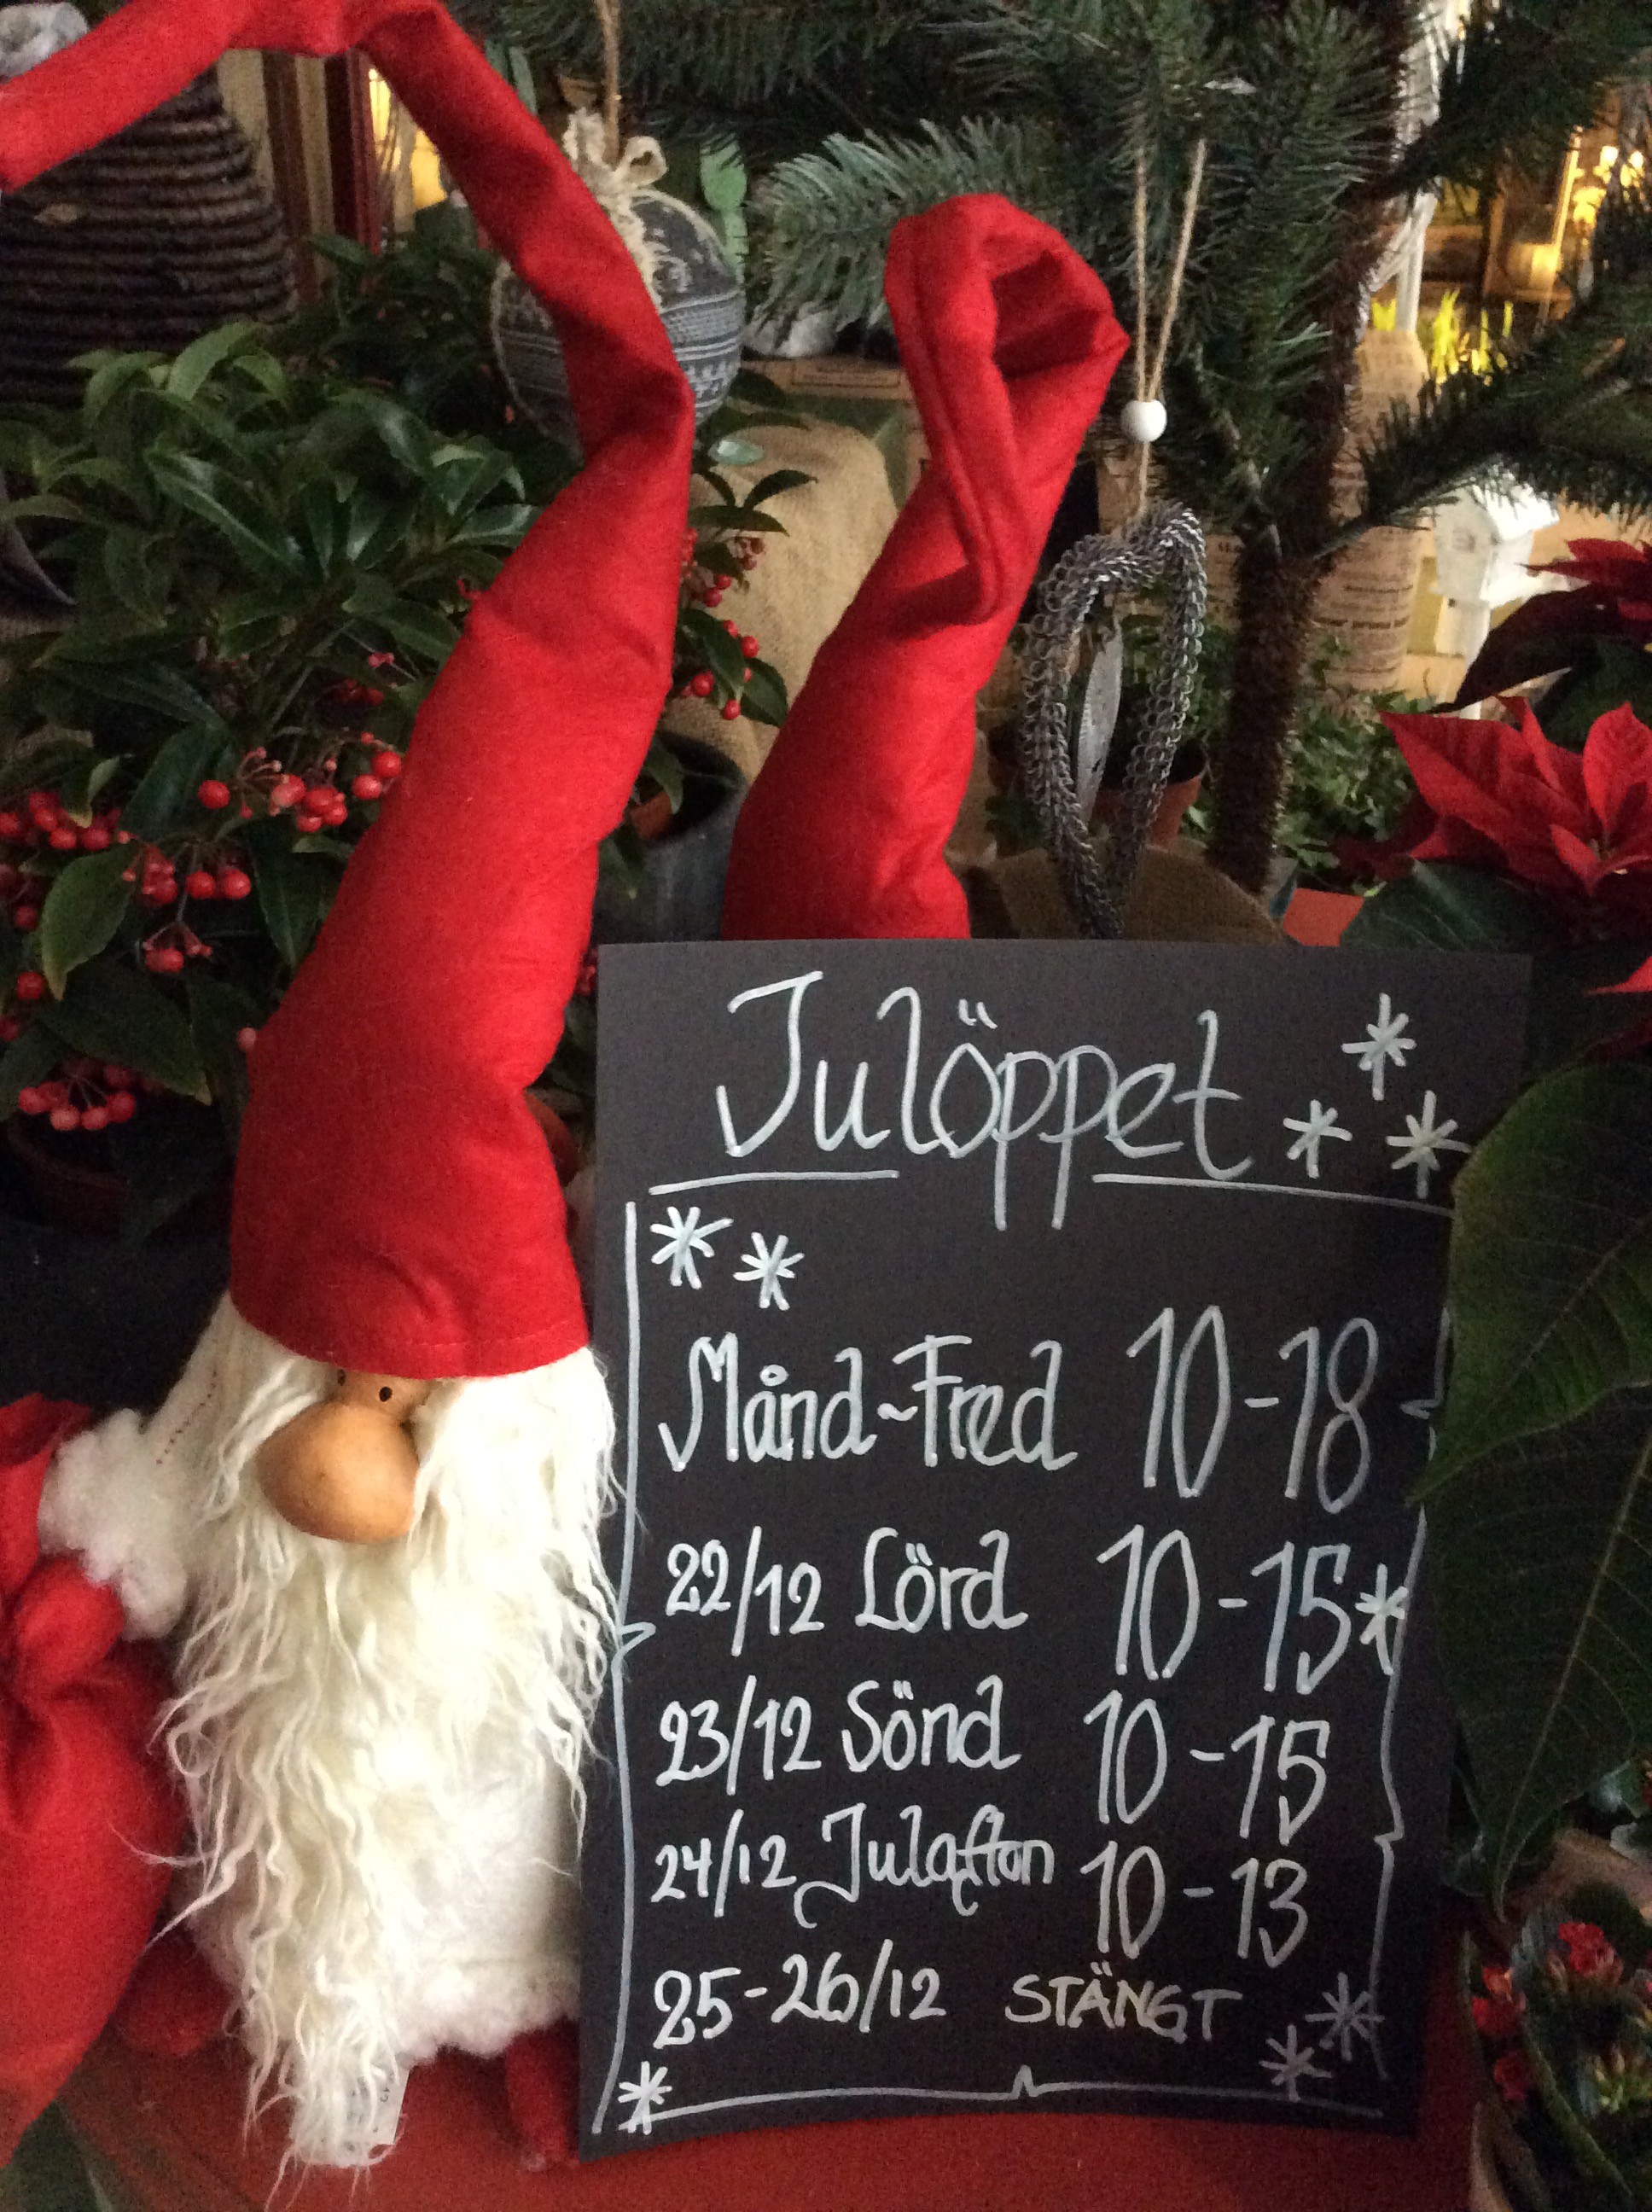 Julöppet
Månd-Fred 10-18
22/12 Lörd 10-15
23/12 Sönd 10-15
24/12 Julafton 10-13
25-26/12 STÄNGT